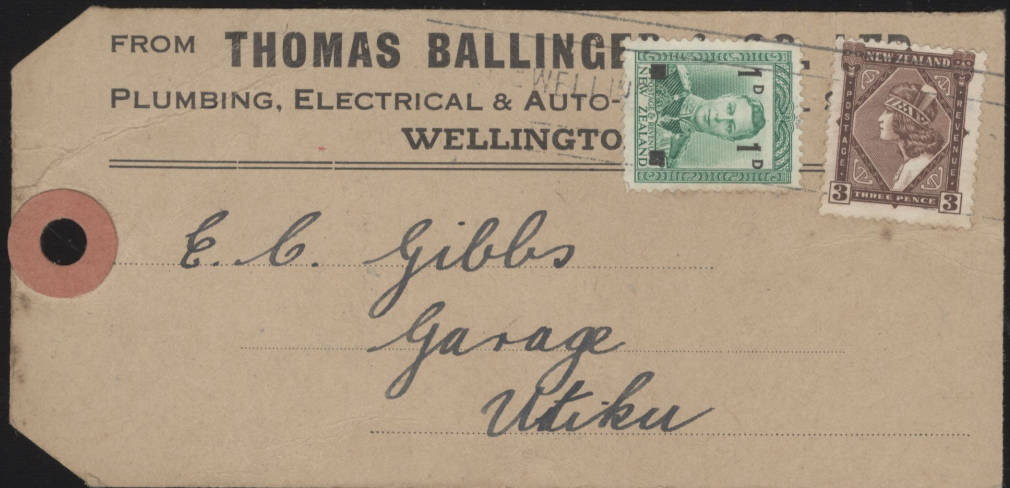 FROM THOMAS BALLINGER & CO. LTD.
PLUMBING, ELECTRICAL & AUTO-
WELLINGTO
WELLIN
NEW ZEALAND
POSTAGE & REVENUE
1D
1D
NEW ZEALAND
POSTAGE
REVENUE
3 THREE PENCE 3
E. C. Gibbs
Garage
Utiku